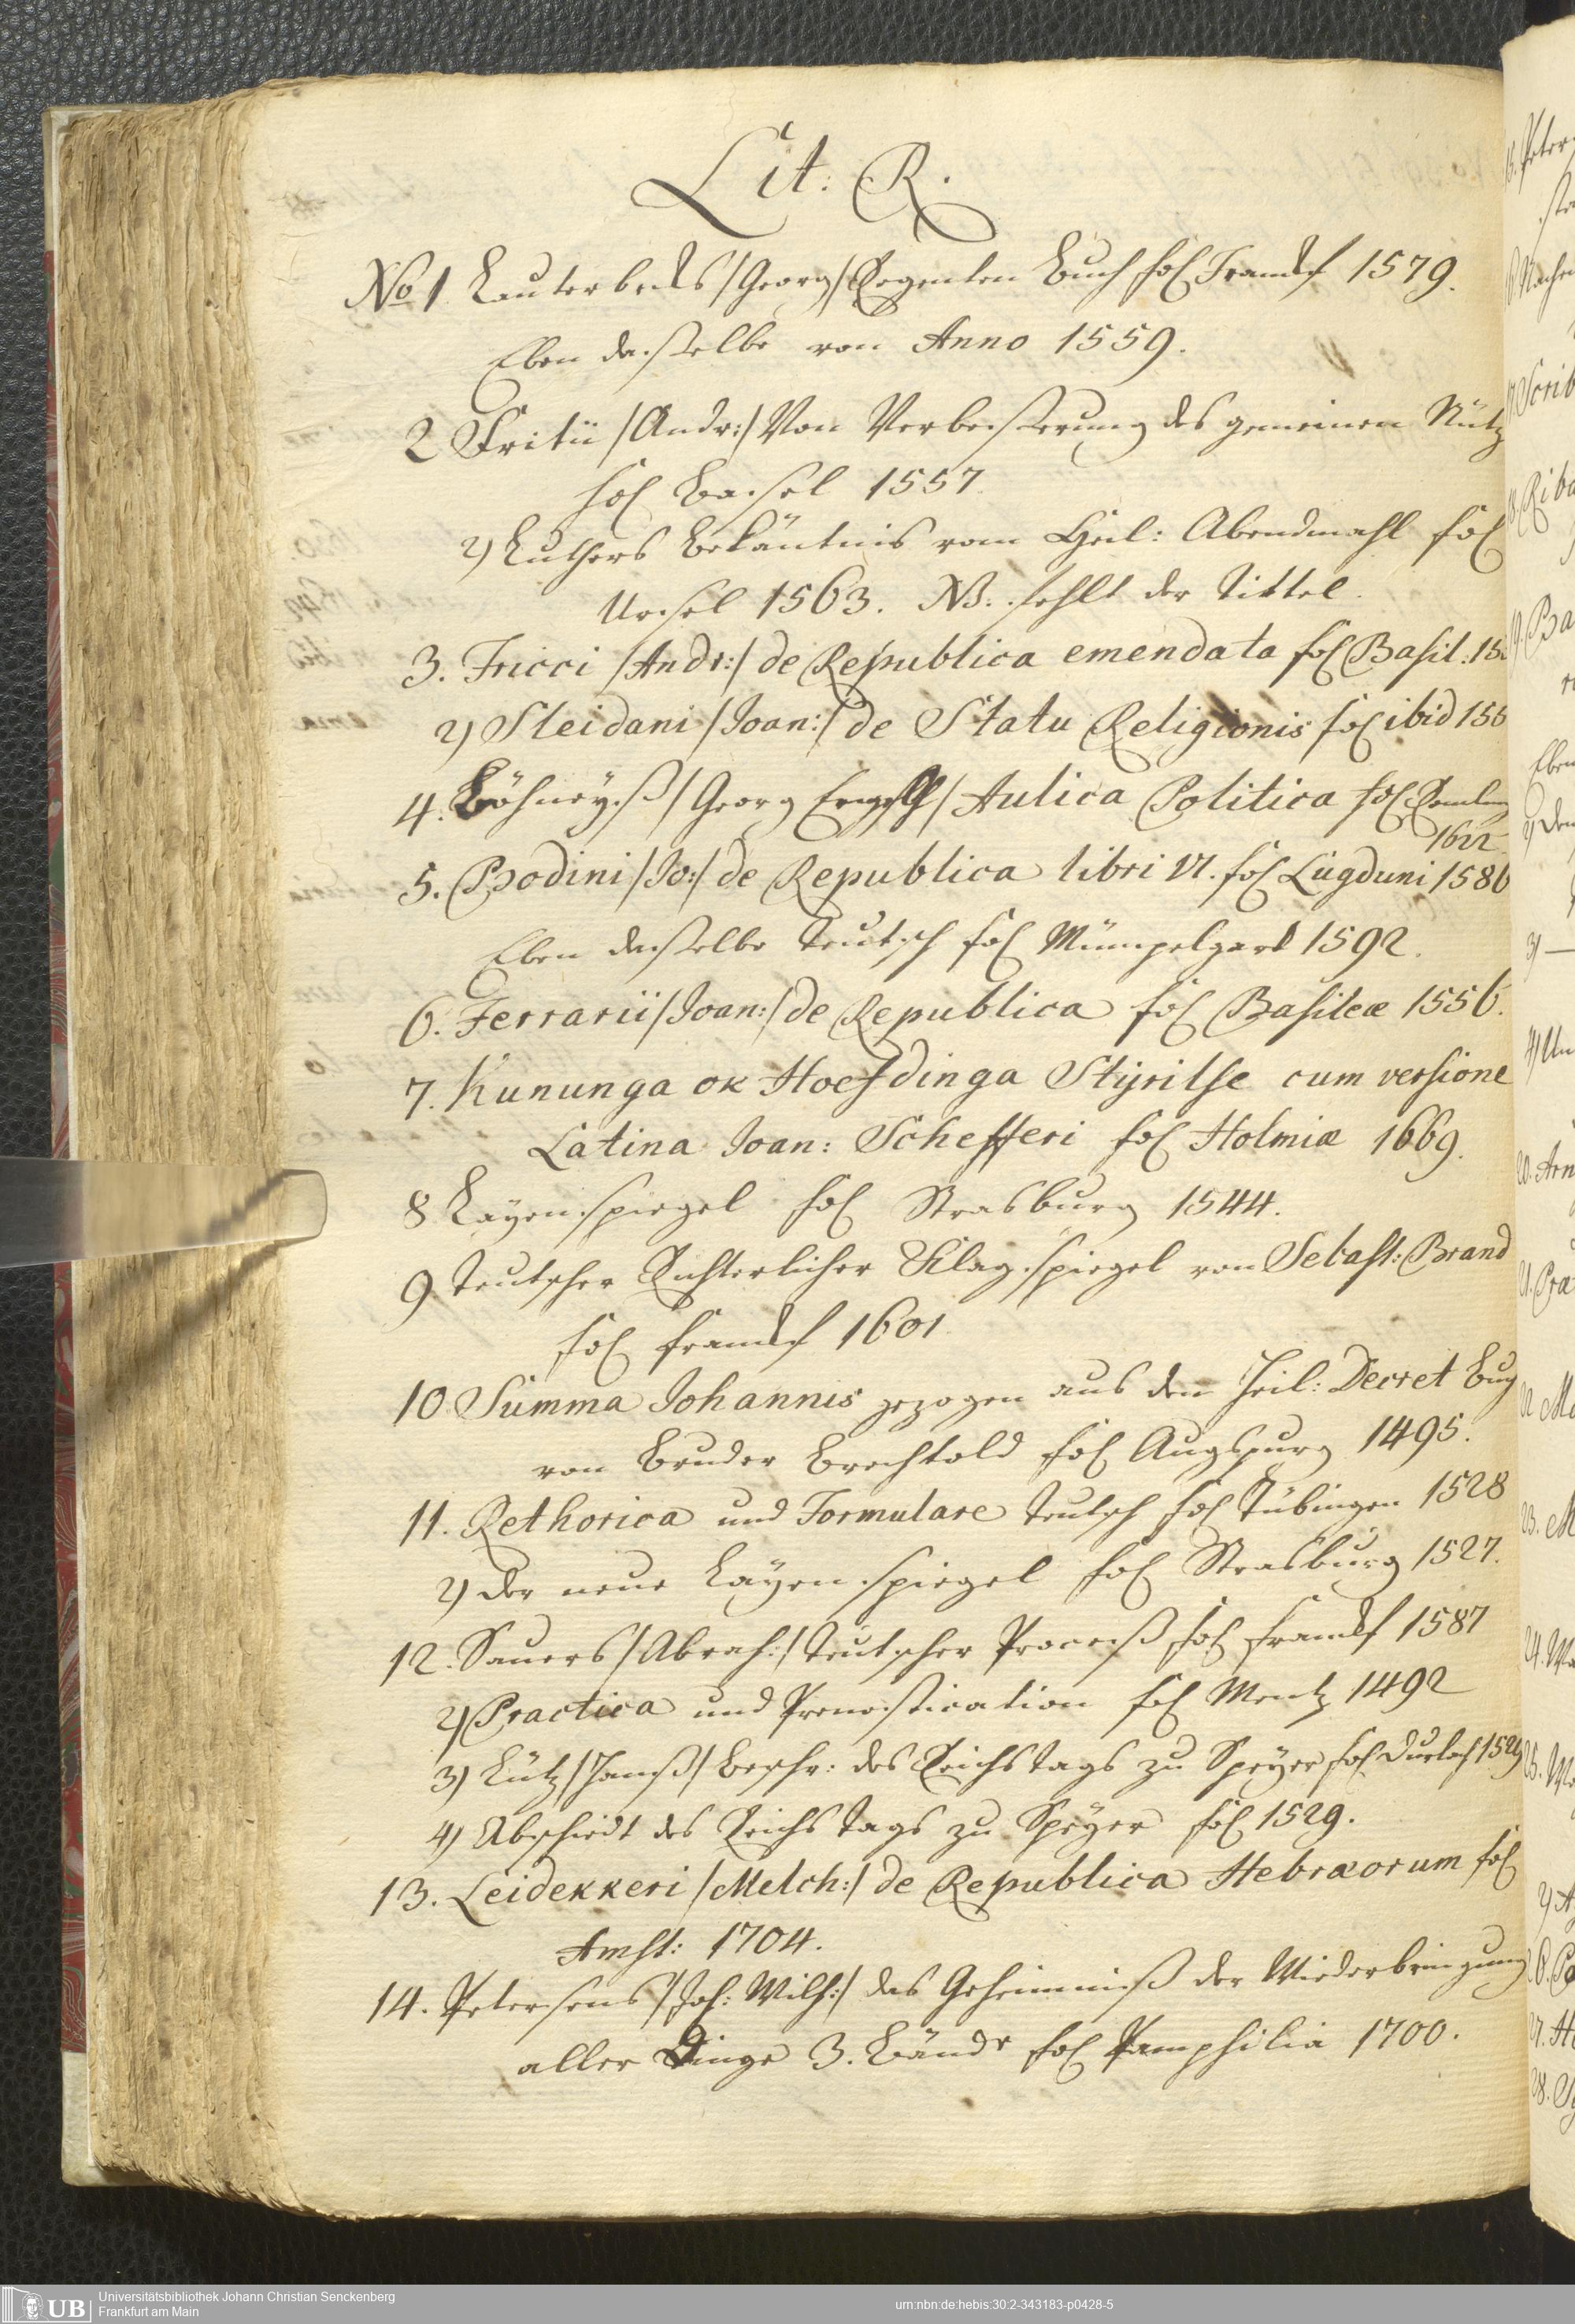 Lit: R.
No 1 Lauterbecks /Georg/ Regenten Buch fol Franckf 1579.
Eben dasselbe von Anno 1559.
2 Fritii /Andr:/ Von Verbesserung des gemeinen Nutz
fol Basel 1557.
2) Luthers Bekäntnis vom Heil: Abendmahl fol
Ursel 1563. NB. fehlt der Tittel.
3. Fricci /Andr:/ de Republica emendata fol Basil: 15
2) Sleidani /Joan:/ de Statu Religionis fol ibid 155
4. Löhneyß /Georg Engelh/ Aulica Politica fol Remling
1622.
5. Bodini /Jo:/ de Republica libri VI. fol Lugduni 1586
Eben dasselbe Teutsch fol Mümpelgard 1592.
6. Ferrarii /Joan:/ de Republica fol Basileæ 1556.
7. Kununga ok Hoefdinga Styrilse cum versione
Latina Joan: Schefferi fol Holmiæ 1669.
8 Layenspiegel fol Strasburg 1544.
9 Teutscher Richterlicher Klagspiegel von Sebast: Brand
fol franckf 1601
10 Summa Johannis gezogen aus dem Heil: Decret Buch
von Bruder Brechtold fol Augspurg 1495.
11. Rethorica und Formulare Teutsch fol Tübingen 1528
2) der neue Layenspiegel fol Strasburg 1527.
12. Saurs /Abrah:/ Teutscher Proceß fol franckf 1587
2) Practica und Prenostication fol Mentz 1492
3) Lutz /Hanß/ Beschr: des Reichstags zu Speyer fol Durlach 1529
4) Abschiedt des Reichs Tags zu Speyer fol 1529.
13. Leidekkeri /Melch:/ de Republica Hebræorum fol
Amst: 1704.
14. Petersens /Joh: Wilh:/ das Geheimniß der Wiederbringung
aller Dinge 3. Bände fol Pamphilia 1700.
UB Universitätsbibliothek Johann Christian Senckenberg
Frankfurt am Main
urn:nbn:de:hebis:30:2-343183-p0428-5